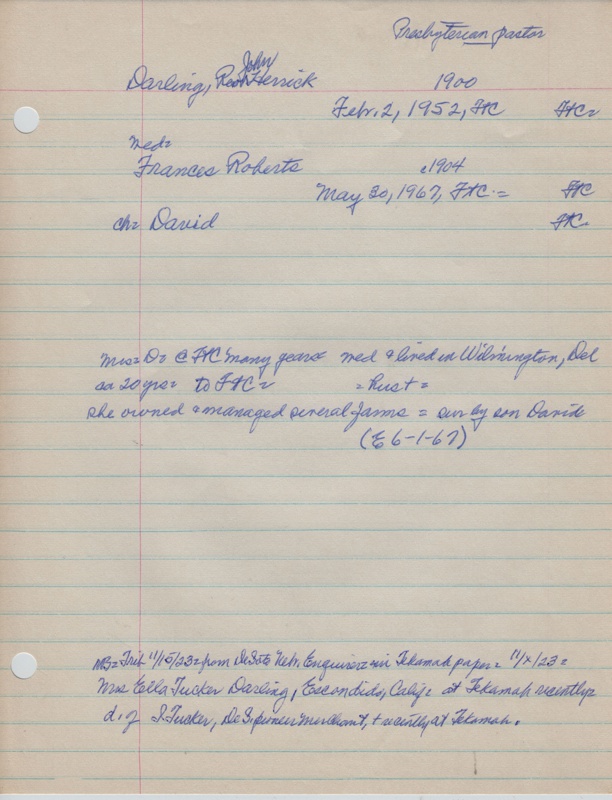 Presbyterian pastor
John
Darling, Rev. Herrick 1900
Feb. 2, 1952, FtC FtC=
med=
Frances Roberts c1904
May 30, 1967, FtC.= FtC
ch= David FtC.
Mrs= D= @ FtC many years med & lived in Wilmington, Del
ca 20 yrs= to FtC= =hust=
she owned & managed several farms = sur by son David
(E 6-1-67)
NB= Trib 11/15/23= from DeSoto Nebr. Enquirer= in Tekamah paper= 11/x/23=
Mrs Ella Tucker Darling, Escondido, Calif= at Tekamah recently=
d. of S. Tucker, DeS. pioneer merchant, + recently at Tekamah.